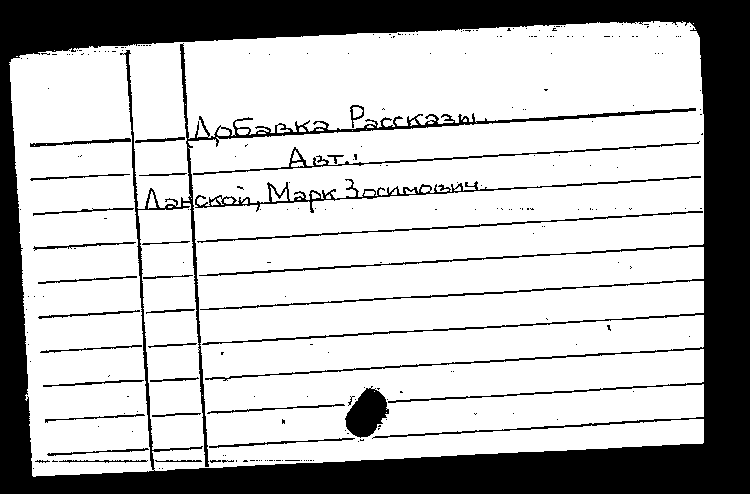 Добавка. Рассказы.
Авт.:
Ланской, Марк Зосимович.